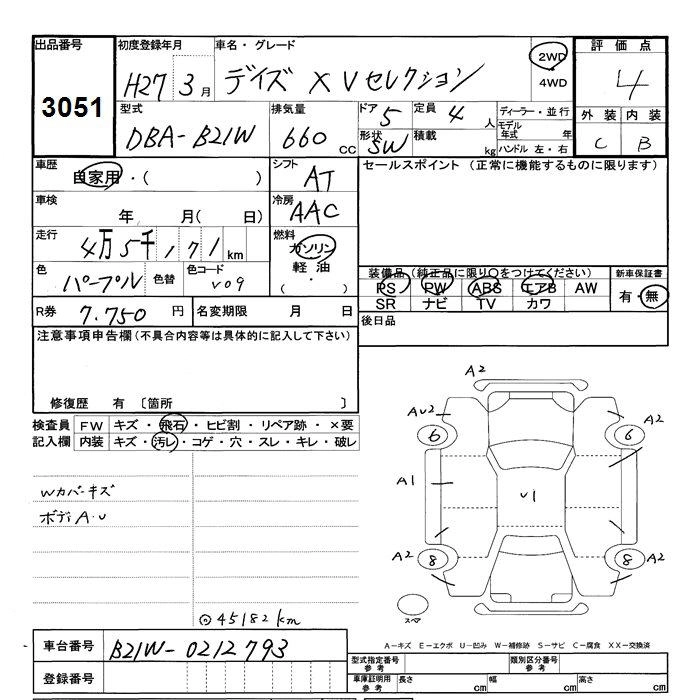 出品番号 初度登録年月 車名・グレード 2WD 評価点
3051 H27 3月 デイズ X Vセレクション 4WD 4
型式 排気量 ドア 5 定員 4人 ディーラー・並行 外装 内装
DBA-B21W 660cc 形状 SW 積載 kg モデル年式 年 C B
ハンドル 左・右
車歴 自家用・( ) シフト AT セールスポイント (正常に機能するものに限ります)
車検 年 月( 日) 冷房 AAC
走行 4万5千171km 燃料 ガソリン 軽油 ( ・ )
色 パープル 色替 色コード V09
装備品(純正品に限り○をつけてください) 新車保証書
PS PW ABS エアB AW 有・無
SR ナビ TV カワ
R券 7.750円 名変期限 月 日 後日品
注意事項申告欄(不具合内容等は具体的に記入して下さい)
修復歴 有 〔箇所 〕
検査員 FW キズ・飛石・ヒビ割・リペア跡・×要
記入欄 内装 キズ・汚レ・コゲ・穴・スレ・キレ・破レ
Wカバーキズ
ボディA・U
◎45182km
A2
AU2 A2
6 6
A1 U1
A2 8 8 A2
スペア
A-キズ E-エクボ U-凹み W-補修跡 S-サビ C-腐食 XX-交換済
車台番号 B21W-0212793
登録番号
型式指定番号 参考 類別区分番号 参考
車庫証明用 参考 長さ cm 幅 cm 高さ cm